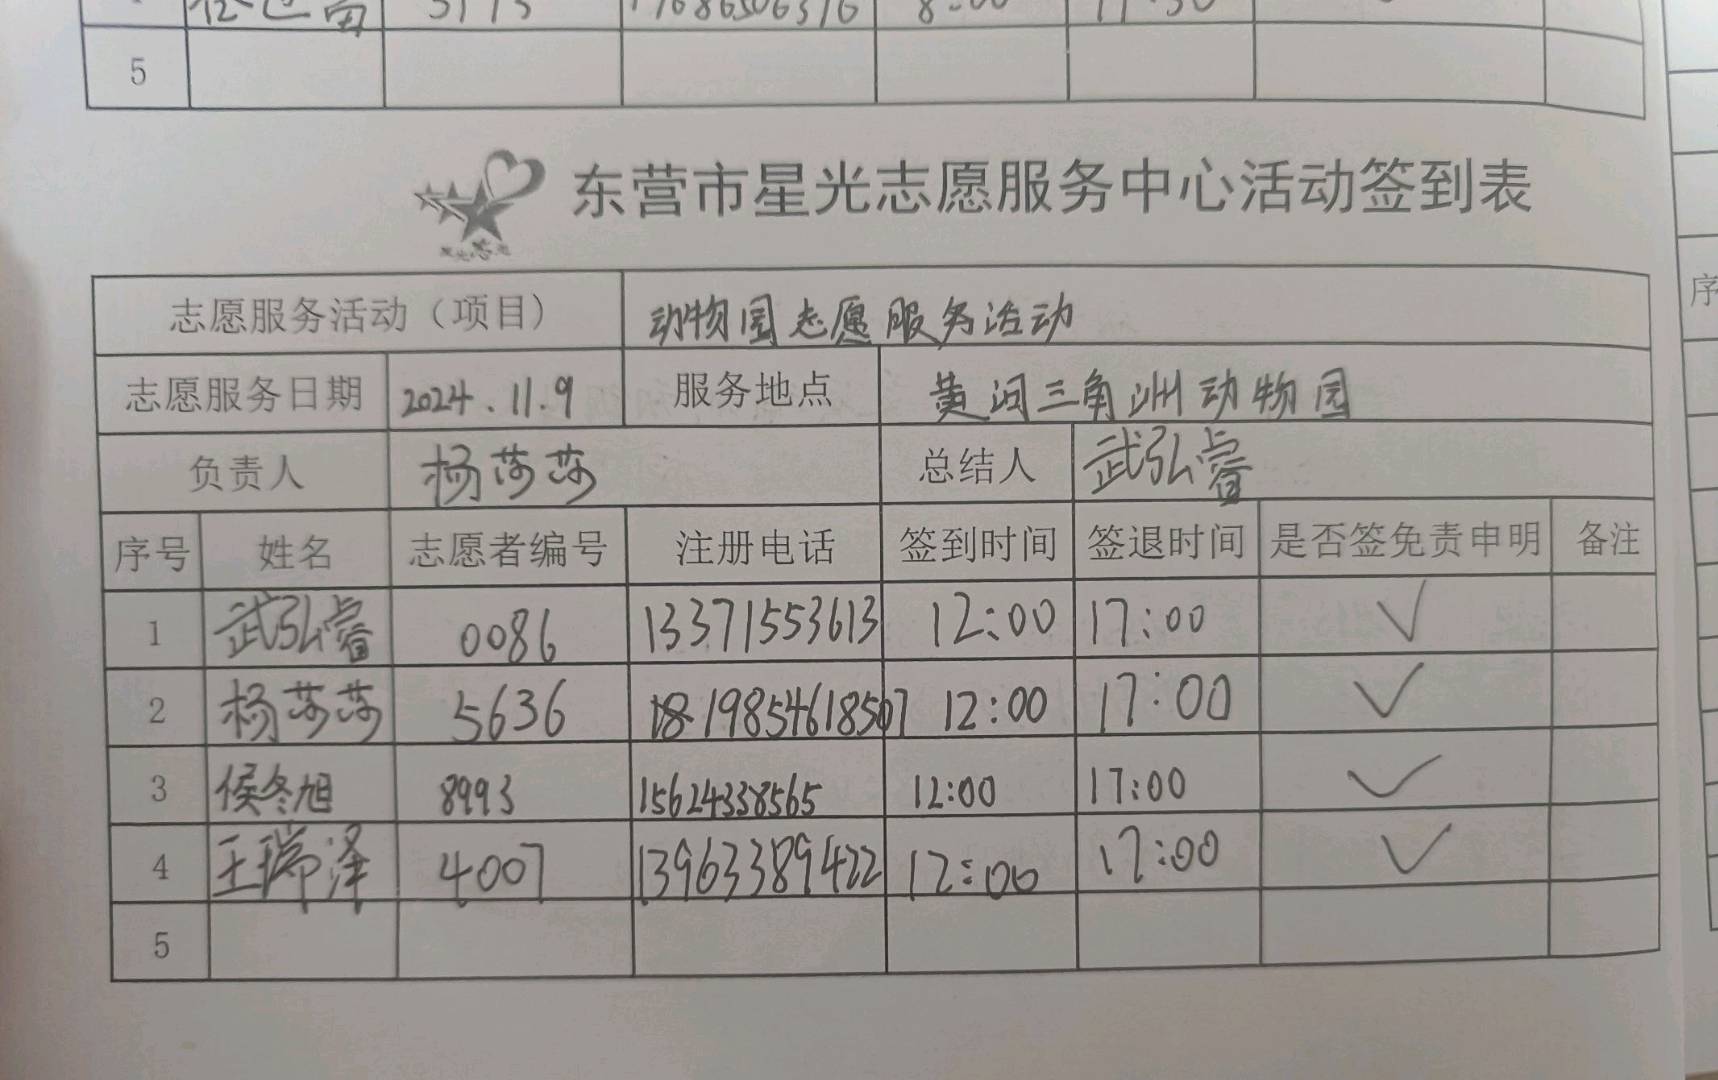 8:00
5
东营市星光志愿服务中心活动签到表
志愿服务活动（项目） 动物园志愿服务活动
志愿服务日期 2024.11.9 服务地点 黄河三角洲动物园
负责人 杨莎莎 总结人 武弘睿
序号 姓名 志愿者编号 注册电话 签到时间 签退时间 是否签免责申明 备注
1 武弘睿 0086 13371553613 12:00 17:00 √
2 杨莎莎 5636 12:00 17:00 √
3 侯冬旭 8993 15624338565 12:00 17:00 √
4 王瑞泽 4007 13963389422 12:00 17:00 √
5
序